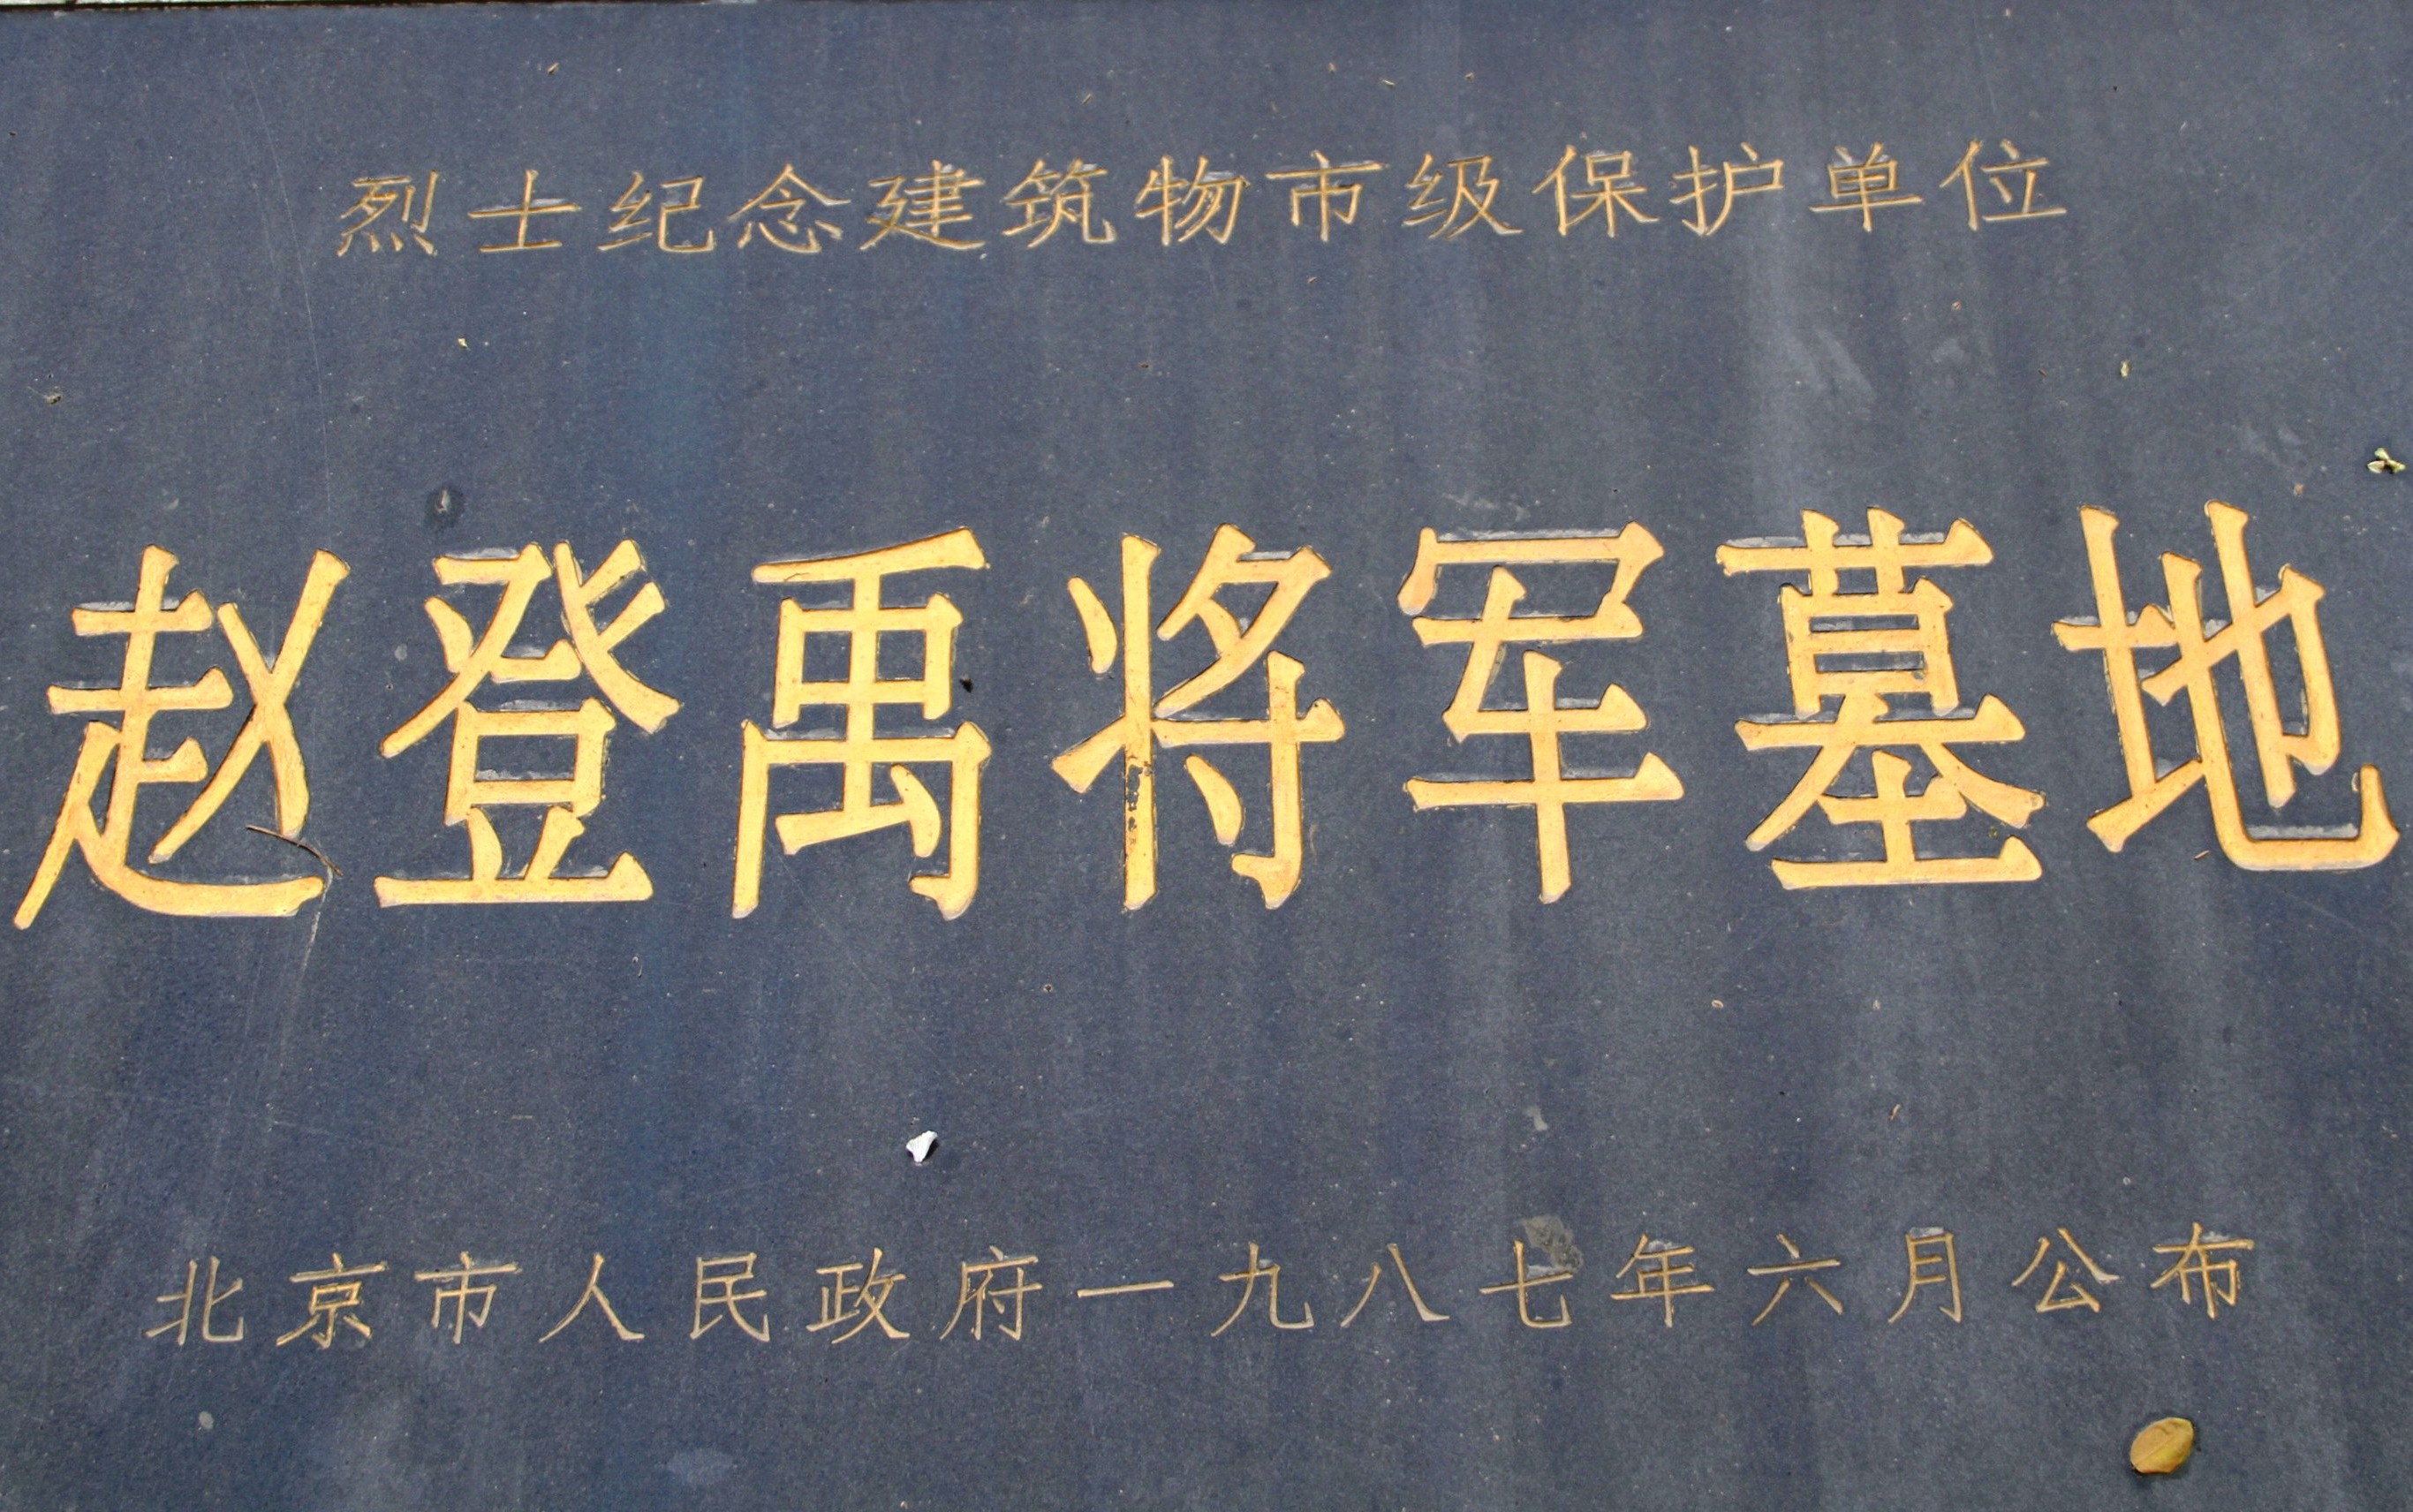 烈士纪念建筑物市级保护单位
赵登禹将军墓地
北京市人民政府一九八七年六月公布